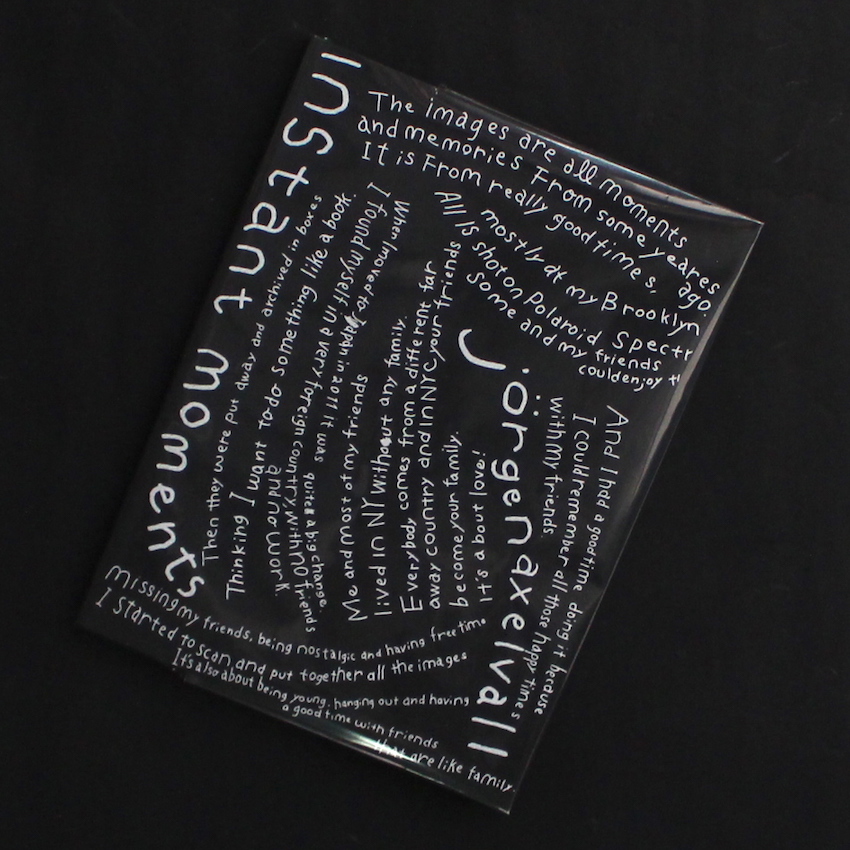 Instant moments
The images are all moments
and memories From some yeares ago.
It is From really good times,
mostly at my Brooklyn
All IS shot on Polaroid Spectr
Some and my friends
could enjoy t
jörgen axelvall
When I moved to Japan in 2011 It was quite a big change.
I found myself in a very foreign country, with no friends
and no work
Thinking I want to do something like a book
Then they were put away and archived in boxes
Me and most of my friends
lived in NY without any family.
Everybody comes from a different far
away country and In NYC your friends
become your family.
It's a bout love!
And I had a good time doing it because
I could remember all those happy times
with my friends
Missing my friends, being nostalgic and having free time
I Started to scan and put together all the images
It's also about being young, hanging out and having
a good time with friends
that are like family.